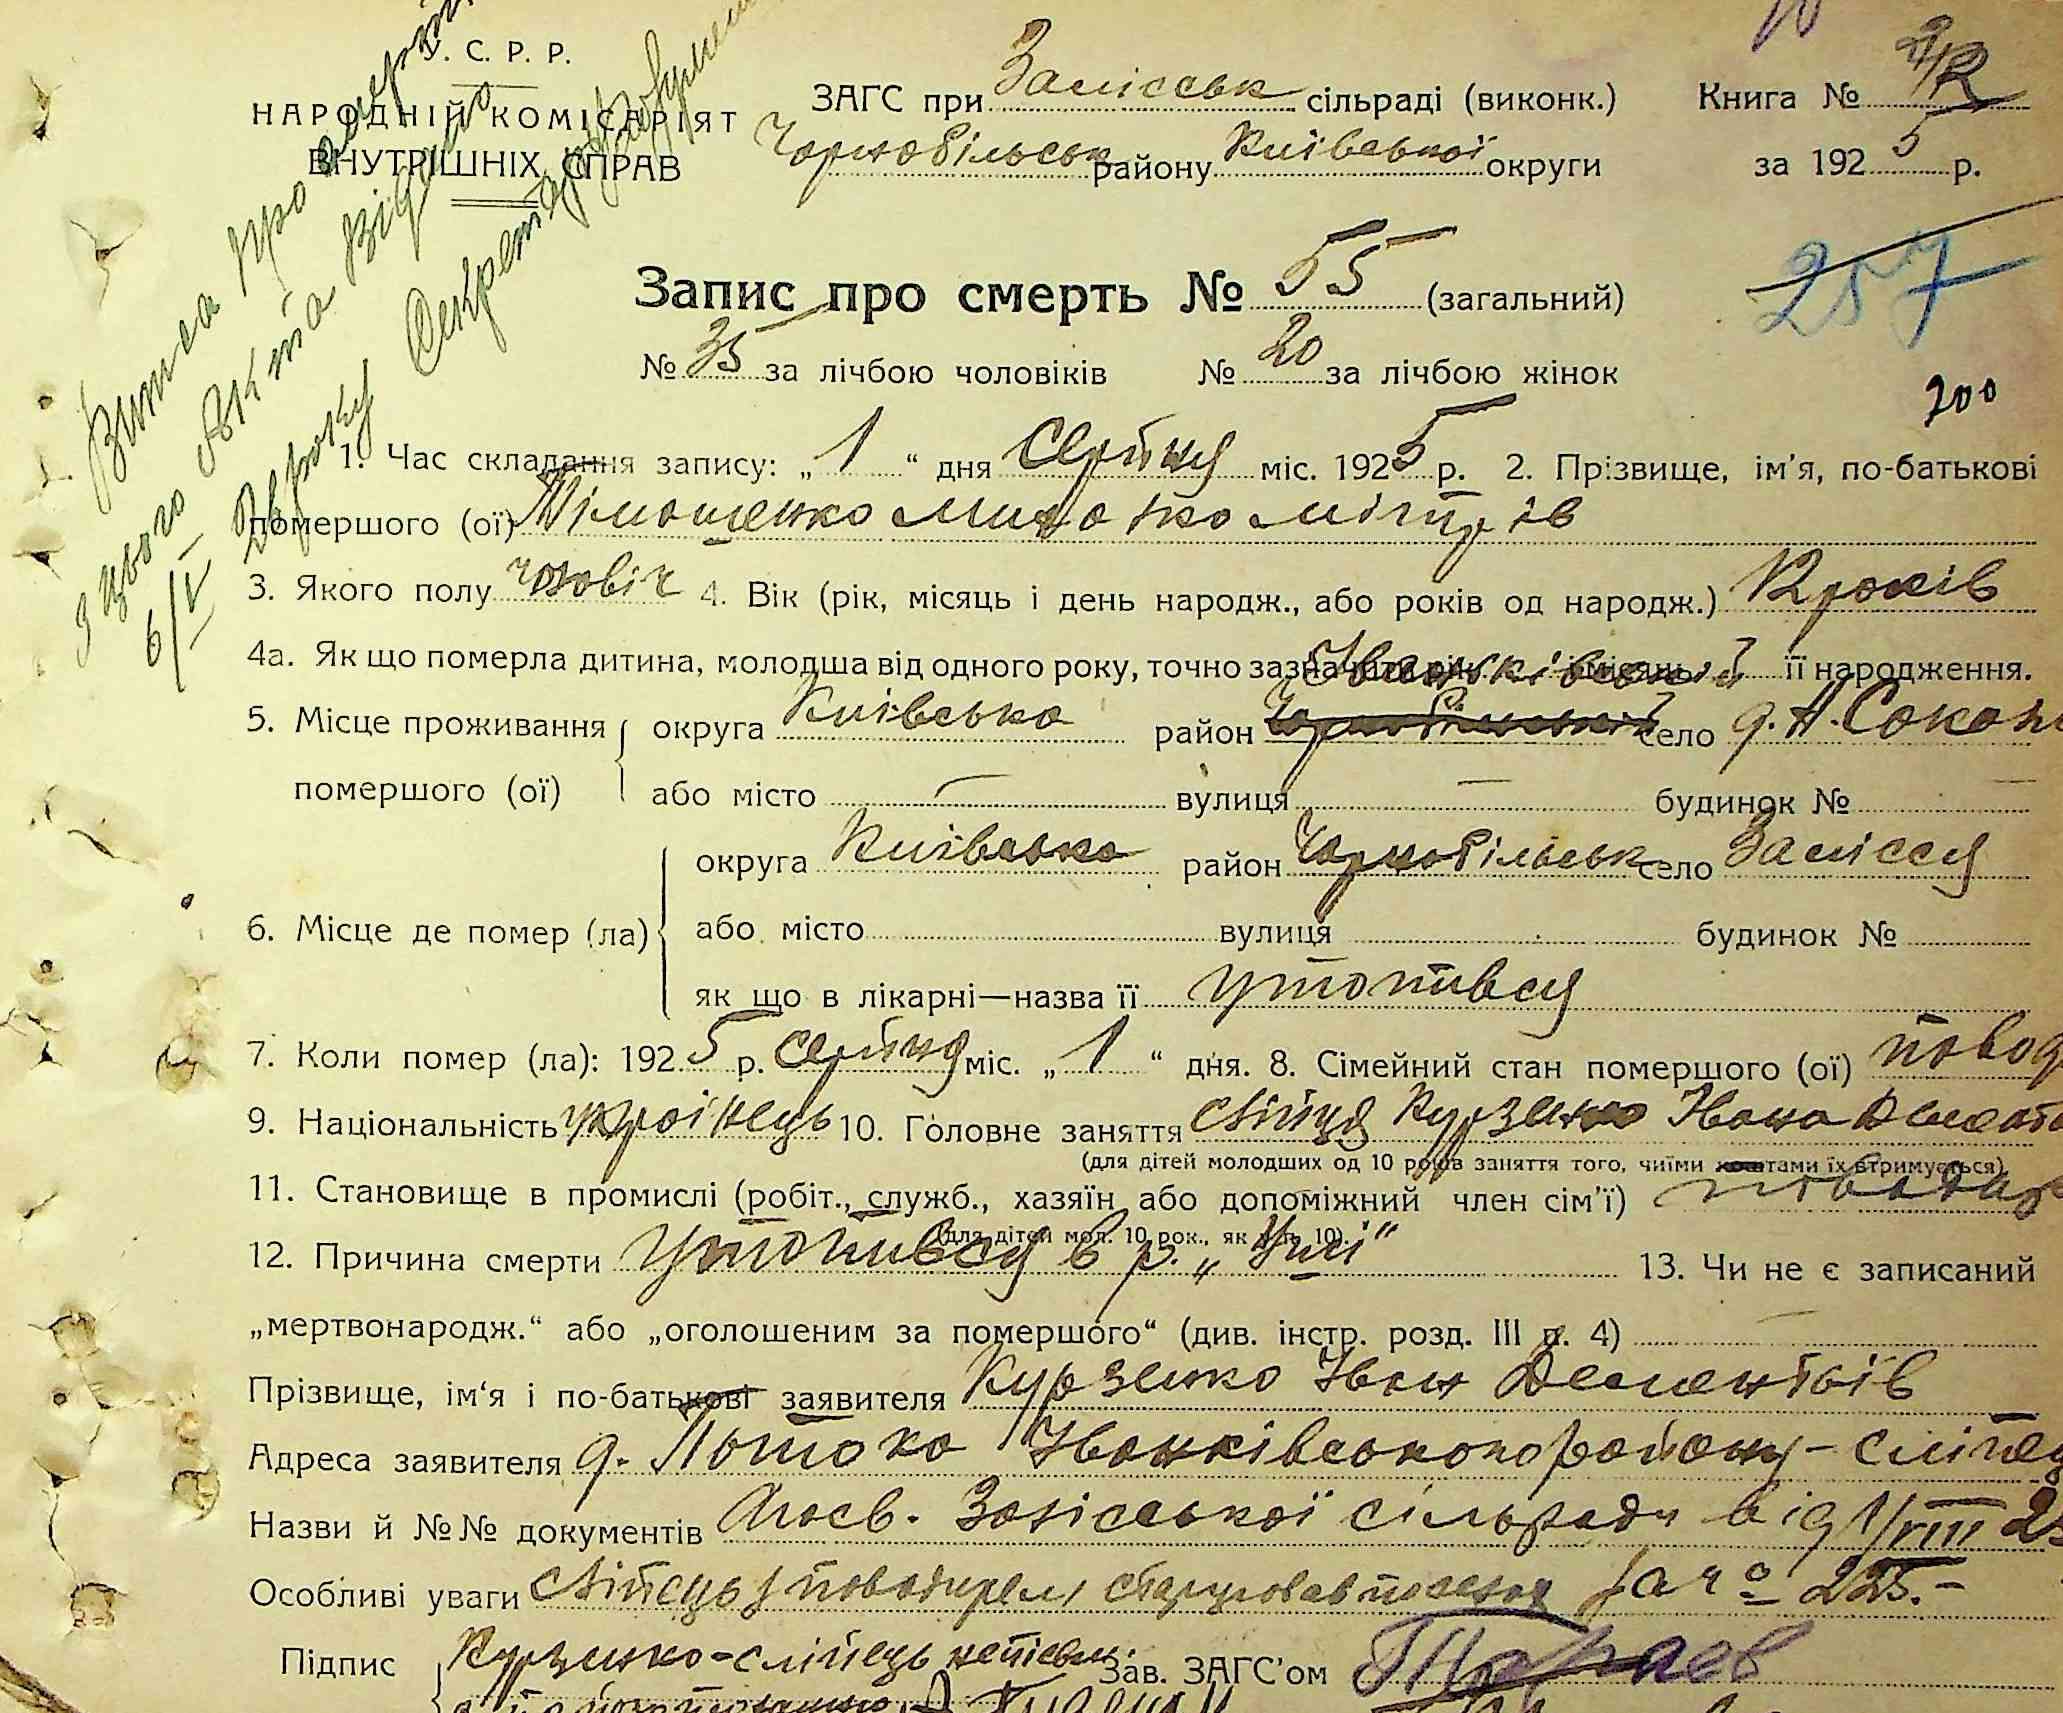 У. С. Р. Р.
НАРОДНІЙ КОМІСАРІЯТ
ВНУТРІШНІХ СПРАВ
ЗАГС при Залісськ сільраді (виконк.)
Чорнобільськ району Київської округи
Книга №
за 1925 р.
Витяг про смерть
з цього Акта Видано
6/V року Секретар
257
200
Запис про смерть № 55 (загальний)
№ 35 за лічбою чоловіків № 20 за лічбою жінок
1. Час складання запису: „1“ дня Серпня міс. 1925 р. 2. Прізвище, ім’я, по-батькові
помершого (ої) Тімошенко
3. Якого полу чоловіч 4. Вік (рік, місяць і день народж., або років од народж.) років
4а. Як що померла дитина, молодша від одного року, точно зазначити рік і місяць її народження.
Іваньківський
5. Місце проживання помершого (ої) округа Київська район Чорнобильський село д. Н. Сокол
або місто — вулиця — будинок № —
6. Місце де помер (ла) округа Київська район Чорнобільськ село Залісся
або місто вулиця будинок №
як що в лікарні—назва її утопився
7. Коли помер (ла): 1925 р. Серпня міс. „1“ дня. 8. Сімейний стан помершого (ої) повод
9. Національність українець 10. Головне заняття сліпця Курзенко Івана
(для дітей молодших од 10 років заняття того, чиїми коштами їх втримується)
11. Становище в промислі (робіт., служб., хазяїн або допоміжний член сім’ї) поводир
(для дітей мол. 10 рок., як в п. 10).
12. Причина смерти Утопився в р. „Уші“ 13. Чи не є записаний
„мертвонародж.“ або „оголошеним за помершого“ (див. інстр. розд. III п. 4) —
Прізвище, ім‘я і по-батькові заявителя Курзенко Іван Дементьїв
Адреса заявителя д. Потоки Іваньківського району – сліпец
Назви й №№ документів Посв. Залісської сільради від 1/VIII 25
Особливі уваги Сліпець з поводирем 225.–
Підпис Курзенко-сліпець Зав. ЗАГС’ом